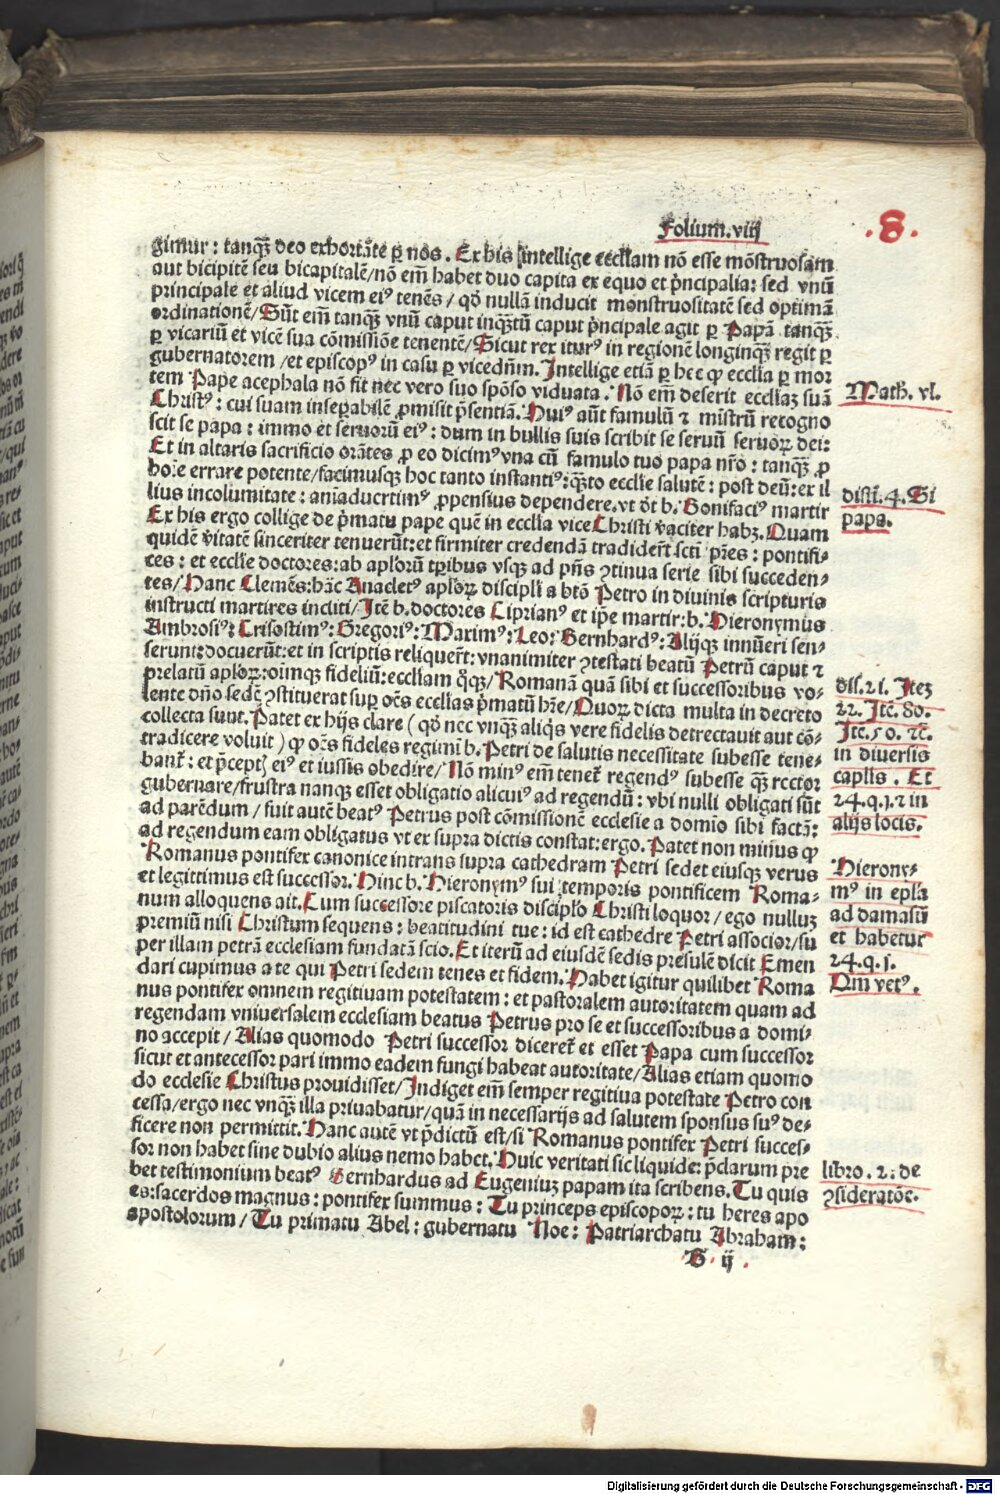 Folium. viij
.8.
gimur : tanqꝫ deo exhortãte ꝑ nos . Ex his intellige eccliam nõ esse mõstruosam
aut bicipitẽ seu bicapitalẽ/nõ em̃ habet duo capita ex equo et p̃ncipalia: sed vnũ
principale et aliud vicem eiꝰ tenẽs / qd̓ nullã inducit monstruositatẽ sed optimã
ordinationẽ/Sũt em̃ tanqꝫ vnũ caput inqꝫtũ caput p̃ncipale agit ꝑ Papã tanqꝫ
ꝑ vicariũ et vicẽ sua cõmissiõe tenentẽ/Sicut rex iturꝰ in regionẽ longinqꝫ regit ꝑ
gubernatorem /et episcopꝰ in casu ꝑ vicedñm. Intellige etiã ꝑ hec ꝙ ecclia ꝑ mor
tem Pape acephala nõ fit nec vero suo spõso viduata . Nõ em̃ deserit eccliaꝫ suã
Christꝰ : cui suam insepabilẽ ꝓmisit p̃sentiã. Huiꝰ aũt famulũ ⁊ mistrũ recogno
scit se papa : immo et seruorũ eiꝰ : dum in bullis suis scribit se seruũ seruoꝝ dei:
Et in altaris sacrificio orãtes ꝓ eo dicimꝰ vna cũ famulo tuo papa nr̃o : tanqꝫ ꝓ
hoĩe errare potente/facimusqꝫ hoc tanto instantiꝰ:qꝫto ecclie salutẽ : post deũ:ex il
lius incolumitate : aniaduertimꝰ ꝓpensius dependere.vt dt̃ b. Bonifaciꝰ martir
Ex his ergo collige de p̃matu pape quẽ in ecclia vice Christi v̓aciter habꝫ. Quam
quidẽ v̓itatẽ sinceriter tenuerũt:et firmiter credendã tradider̃t sct̃i pr̃es : pontifi⸗
ces : et ecclie doctores:ab apl̓orũ tꝑibus vsqꝫ ad pñs ꝯtinua serie sibi succeden⸗
tes/ Hanc Clemẽs:hãc Anacletꝰ apl̓oꝝ discipli a btõ Petro in diuinis scripturis
instructi martires incliti/ Itẽ b.doctores Ciprianꝰ et ip̃e martir:b. Hieronymus
Ambrosiꝰ: Crisostimꝰ: Gregoriꝰ: Maximꝰ: Leo: Bernhardꝰ: Alijqꝫ innũeri sen⸗
serunt:docuerũt:et in scriptis reliquer̃t: vnanimiter ꝯtestati beatũ Petrũ caput ⁊
prelatũ apl̓oꝝ:oĩmqꝫ fideliũ:eccliam q̃qꝫ/ Romanã quã sibi et successoribus vo⸗
lente dño sedẽ ꝯstituerat suꝑ oẽs ecclias p̃matũ hr̃e/Quoꝝ dicta multa in decreto
collecta sunt. Patet ex hijs clare ( qd̓ nec vnqꝫ aliq̓s vere fidelis detrectauit aut cõ⸗
tradicere voluit ) ꝙ oẽs fideles regimĩ b. Petri de salutis necessitate subesse tene⸗
bant̃ : et p̃ceptꝭ eiꝰ et iussis obedire/ Nõ minꝰ em̃ tenet̃ regendꝰ subesse qꝫ rector
gubernare/frustra nanqꝫ esset obligatio alicuiꝰ ad regendũ : vbi nulli obligati sũt
ad parẽdum / fuit autẽ beatꝰ Petrus post cõmissionẽ ecclesie a domĩo sibi factã:
ad regendum eam obligatus vt ex supra dictis constat:ergo. Patet non minus ꝙ
Romanus pontifex canonice intrans supra cathedram Petri sedet eiusqꝫ verus
et legittimus est successor. Hinc b. Hieronymꝰ sui temporis pontificem Roma⸗
num alloquens ait.Cum successore piscatoris discipl̓o Christi loquor/ ego nulluꝫ
premiũ nisi Christum sequens : beatitudini tue : id est cathedre Petri associor/su
per illam petrã ecclesiam fundatã scio.Et iterũ ad eiusdẽ sedis presulẽ dicit Emen
dari cupimus a te qui Petri sedem tenes et fidem. Habet igitur quilibet Roma
nus pontifex omnem regitiuam potestatem : et pastoralem autoritatem quam ad
regendam vniuersalem ecclesiam beatus Petrus pro se et successoribus a domi⸗
no accepit / Alias quomodo Petri successor diceret̃ et esset Papa cum successor
sicut et antecessor pari immo eadem fungi habeat autoritate/Alias etiam quomo
do ecclesie Christus prouidisset/Indiget em̃ semper regitiua potestate Petro con
cessa/ergo nec vnqꝫ illa priuabatur/quã in necessarijs ad salutem sponsus suꝰ de⸗
ficere non permittit. Hanc autẽ vt p̃dictũ est/si Romanus pontifex Petri succes⸗
sor non habet sine dubio alius nemo habet. Huic veritati sic liquide: p̃clarum pre
bet testimonium beatꝰ Bernhardus ad Eugeniuꝫ papam ita scribens.Tu quis
es:sacerdos magnus : pontifex summus : Tu princeps episcopoꝝ : tu heres apo
spostolorum / Tu primatu Abel : gubernatu Noe : Patriarchatu Abraham :
B . ij .
Math. vl.
distĩ. 4. Si
papa.
dis. 21. Iteꝫ
22. Itẽ. 80.
Itẽ. 50. ⁊c̃.
in diuersis
caplis . Et
24.q.1.⁊ in
alijs locis.
Hierony⸗
mꝰ in epl̓a
ad damasũ
et habetur
24. q. 1.
Qm̃ vetꝰ.
libro. 2: de
ꝯsideratõe.
Digitalisierung gefördert durch die Deutsche Forschungsgemeinschaft - DFG